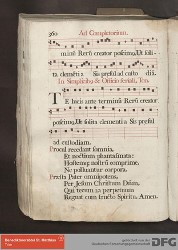 360 Ad Completorium.
minũ Rerũ creator poscimus, Ut soli-
ta clementia Sis præsul ad custodiã.
In Simplicibus & Officio feriali, Ton.
TE lucis ante terminũ Rerũ creator
poscimus, Ut solita clementia Sis præsul
ad custodiam.
Procul recedant somnia,
Et noctium phantasmata:
Hostemque nostrũ comprime,
Ne polluantur corpora.
Præsta Pater omnipotens,
Per Jesum Christum Dominum,
Qui tecum in perpetuum
Regnat cum sancto Spiritu. Amen.
DFG